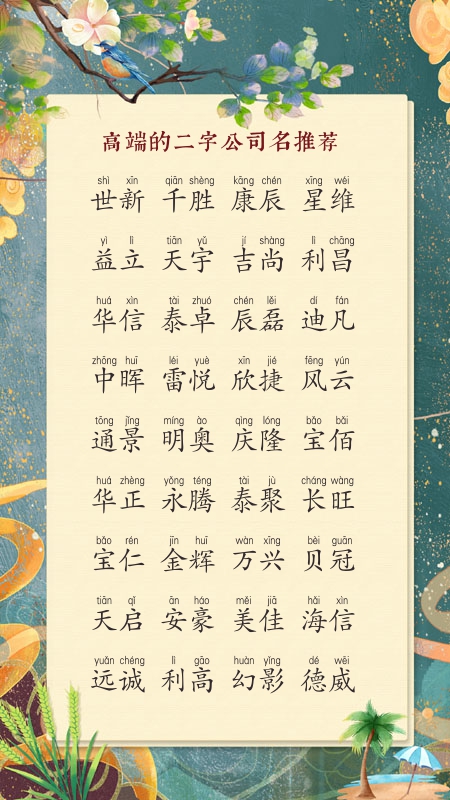 高端的二字公司名推荐
shì xīn qiān shèng kāng chén xīng wéi
世新 千胜 康辰 星维
yì lì tiān yǔ jí shàng lì chāng
益立 天宇 吉尚 利昌
huá xìn tài zhuó chén lěi dí fán
华信 泰卓 辰磊 迪凡
zhōng huī léi yuè xīn jié fēng yún
中晖 雷悦 欣捷 风云
tōng jǐng míng ào qìng lóng bǎo bǎi
通景 明奥 庆隆 宝佰
huá zhèng yǒng téng tài jù cháng wàng
华正 永腾 泰聚 长旺
bǎo rén jīn huī wàn xīng bèi guān
宝仁 金辉 万兴 贝冠
tiān qǐ ān háo měi jiā hǎi xìn
天启 安豪 美佳 海信
yuǎn chéng lì gāo huàn yǐng dé wēi
远诚 利高 幻影 德威